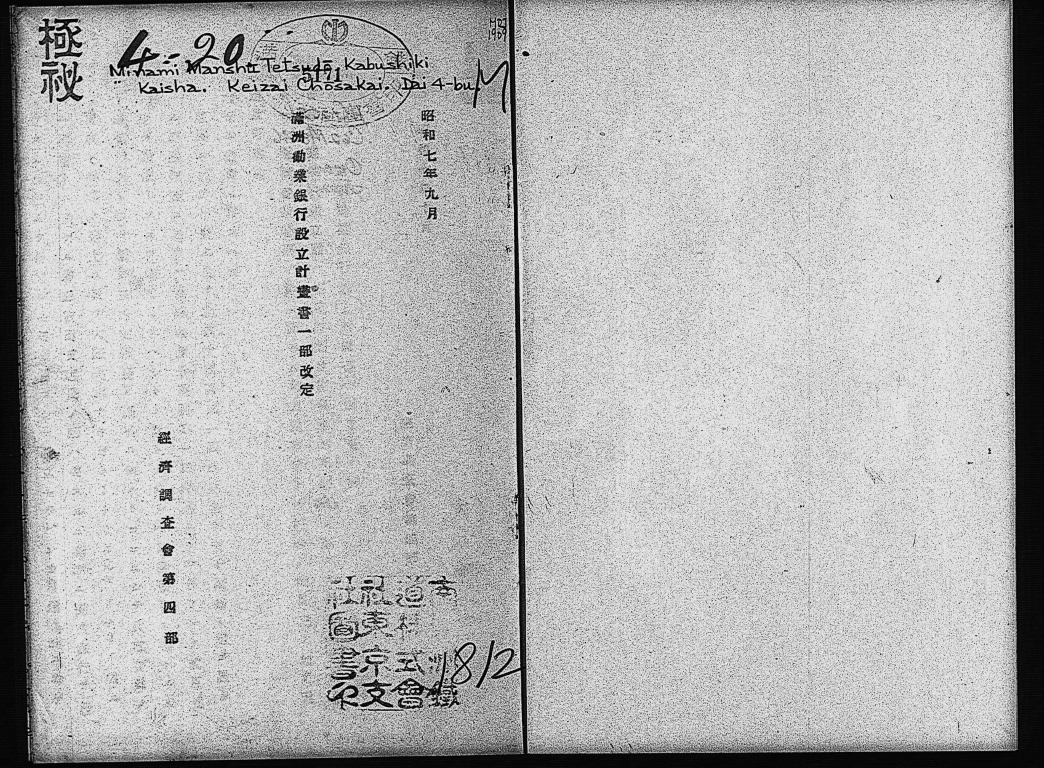 極祕
4-20
Minami Manshū Tetsudō Kabushiki
Kaisha. Keizai Chōsakai. Dai 4-bu
5171
M
昭和七年九月
滿洲勸業銀行設立計畫書一部改定
經濟調查會第四部
道
株式會
社東京支
1812